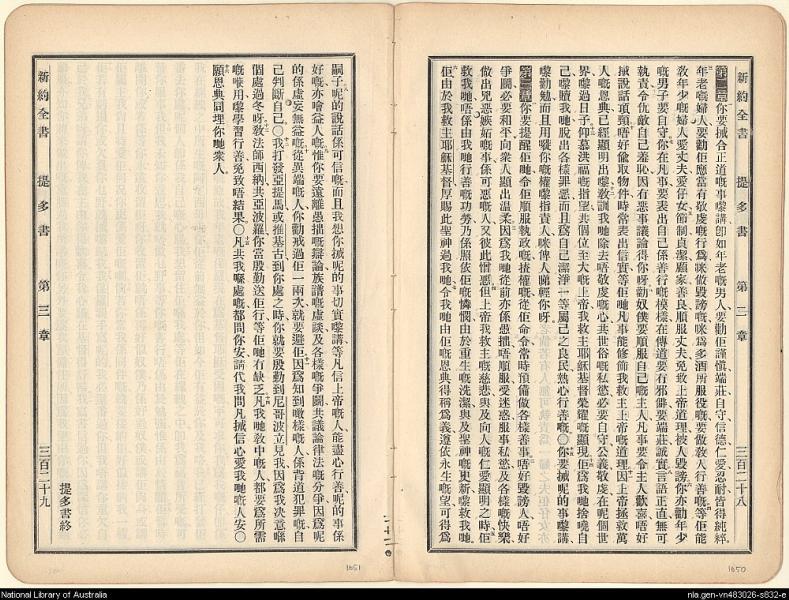 新約全書 提多書 第二章 三百二十八
第二章 你要械合正道嘅事嚟講卽如年老嘅男人要勸佢謹愼端莊自守信德仁愛忍耐皆得純粹
年老嘅婦人要勸佢應當有敬虔嘅行爲咪做毀謗嘅咪爲多酒所服役嘅要做敎人行善嘅等佢能
敎年少嘅婦人愛丈夫愛仔女節制貞潔顧家善良順服丈夫免致上帝道理被人毀謗你亦勸年少
嘅男子要自守你在凡事要表出自己係善行嘅模樣在傳道要冇邪僻要端莊誠實言語正直無可
執責令仇敵自己羞恥因冇惡事議論得你呀勸奴僕要順服自己嘅主人凡事要令主人歡喜唔好
械說話頂頸唔好偷取物件時常表出信實等佢哋凡事能修飾我救主上帝嘅道理因上帝拯救萬
人嘅恩典已經顯明出嚟敎訓我哋除去唔敬虔嘅心共世俗嘅私慾必要自守公義敬虔在呢個世
界嚟過日子仰慕洪福嘅指望共個位至大嘅上帝我救主耶穌基督榮耀嘅顯現佢爲我哋捨嘵自
己嚟贖我哋脫出各樣罪惡而且爲自己潔淨一等屬己之良民熱心行善嘅○你要械呢的事嚟講
嚟勸勉而且用嘅權嚟指責人咪俾人睇輕你呀
第三章 你要提醒佢哋令佢順服執政嘅揸權嘅從佢命令常時預備做各樣善事唔好毀謗人唔好
爭鬭必要和平向衆人顯出溫柔因爲我哋從前亦係愚拙唔順服受迷惑服事私慾及各樣嘅快樂
做出兇惡嫉妒嘅事係可惡嘅人又彼此憎惡但上帝我救主嘅慈悲與及向人嘅仁愛顯明之時佢
救我哋唔係由我哋行善嘅功勞乃係照依佢嘅憐憫由於重生嘅洗潔與及聖神嘅更新嚟救我哋
佢由於我救主耶穌基督厚賜此聖神過我哋令我哋由佢嘅恩典得稱爲義遵依永生嘅望可得爲
1650
嗣子呢的說話係可信嘅而且我想你械呢的事切實嚟講等凡信上帝嘅人能盡心行善呢的事係
好嘅亦噲益人嘅惟你要遠離愚拙嘅辯論族譜嘅虛談及各樣嘅爭鬭共議論律法嘅分爭因爲呢
的係虛妄無益嘅從異端嘅人你勸戒過佢一兩次就要避佢因爲知到噉樣嘅人係背道犯罪嘅自
己判斷自己○我打發亞提馬或推基古到你處之時你就要殷勤到尼哥波立見我因爲我決意喺
個處過冬呀敎法師西納共亞波羅你當殷勤送佢行等佢哋冇缺乏凡我哋敎中嘅人都要爲所需
嘅嚟用嚟學習行善免致唔結果○凡共我喺處嘅都問你安請代我問凡械信心愛我哋嘅人安○
願恩典同埋你哋衆人
提多書終
新約全書 提多書 第三章 三百二十九
1651
National Library of Australia
nla.gen-vn483026-s832-e